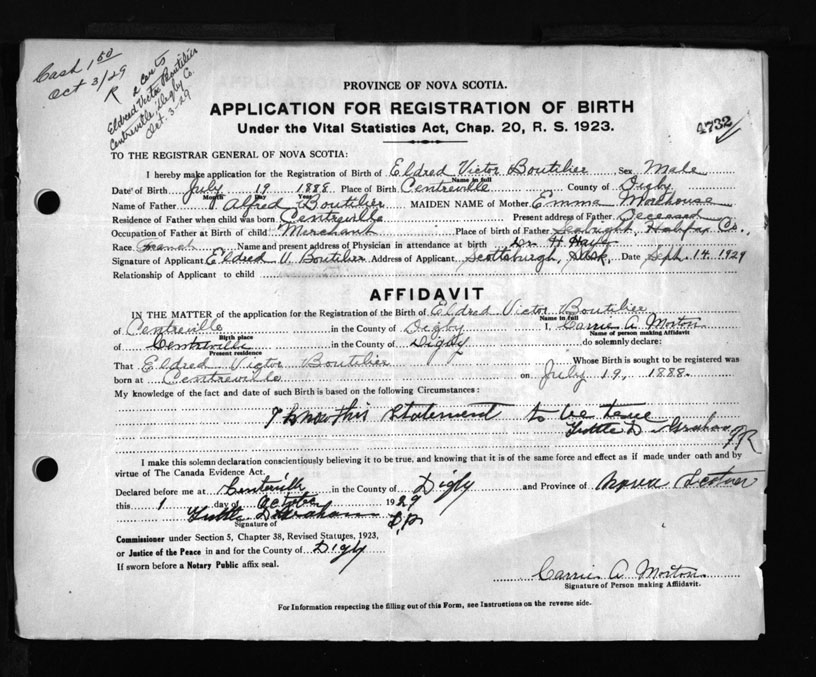 Cash 1.00
Oct 3/29
R 2 certs
Eldred Victor Boutilier
Centreville, Digby Co.
Oct. 3-29
PROVINCE OF NOVA SCOTIA.
APPLICATION FOR REGISTRATION OF BIRTH
Under the Vital Statistics Act, Chap. 20, R. S. 1923.
4732
TO THE REGISTRAR GENERAL OF NOVA SCOTIA:
I hereby make application for the Registration of Birth of Eldred Victor Boutilier Sex Male
Name in full
Date of Birth July 19 1888 Place of Birth Centreville County of Digby
Month Day Year
Name of Father Alfred Boutilier MAIDEN NAME of Mother Emma Morehouse
Residence of Father when child was born Centreville Present address of Father Deceased
Occupation of Father at Birth of child Merchant Place of birth of Father Seabright, Halifax Co.
Race French Name and present address of Physician in attendance at birth Dr. H.
Signature of Applicant Eldred V. Boutilier Address of Applicant Scottsburgh, Sask. Date Sept. 14. 1929
Relationship of Applicant to child
AFFIDAVIT
IN THE MATTER of the application for the Registration of the Birth of Eldred Victor Boutilier
Name in full
of Centreville in the County of Digby I, Carrie A. Morton
Birth place Name of person making Affidavit
of Centreville in the County of Digby do solemnly declare:
Present residence
That Eldred Victor Boutilier Whose Birth is sought to be registered was
born at Centreville on July 19, 1888.
My knowledge of the fact and date of such Birth is based on the following Circumstances:
I know this statement to be true
Graham
I make this solemn declaration conscientiously believing it to be true, and knowing that it is of the same force and effect as if made under oath and by
virtue of The Canada Evidence Act.
Declared before me at Centreville in the County of Digby and Province of Nova Scotia
this 1 day of October 1929
Graham J.P.
Signature of
Commissioner under Section 5, Chapter 38, Revised Statutes, 1923,
or Justice of the Peace in and for the County of Digby
If sworn before a Notary Public affix seal.
Carrie A Morton
Signature of Person making Affidavit.
For Information respecting the filling out of this Form, see Instructions on the reverse side.